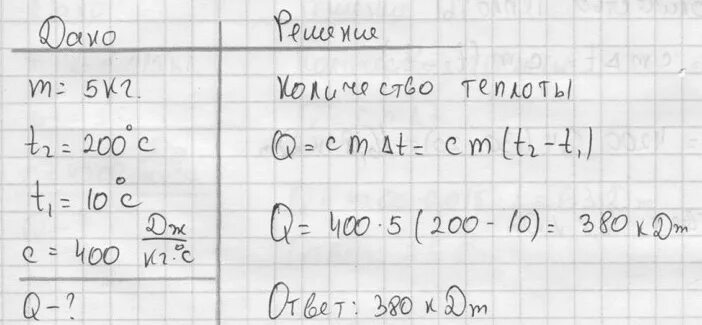 Дано
m = 5 кг.
t₂ = 200°c
t₁ = 10°c
c = 400 Дж/кг·°c
Q - ?
Решение
Количество теплоты
Q = c m Δt = c m (t₂ - t₁)
Q = 400·5 (200 - 10) = 380 кДж
Ответ: 380 кДж